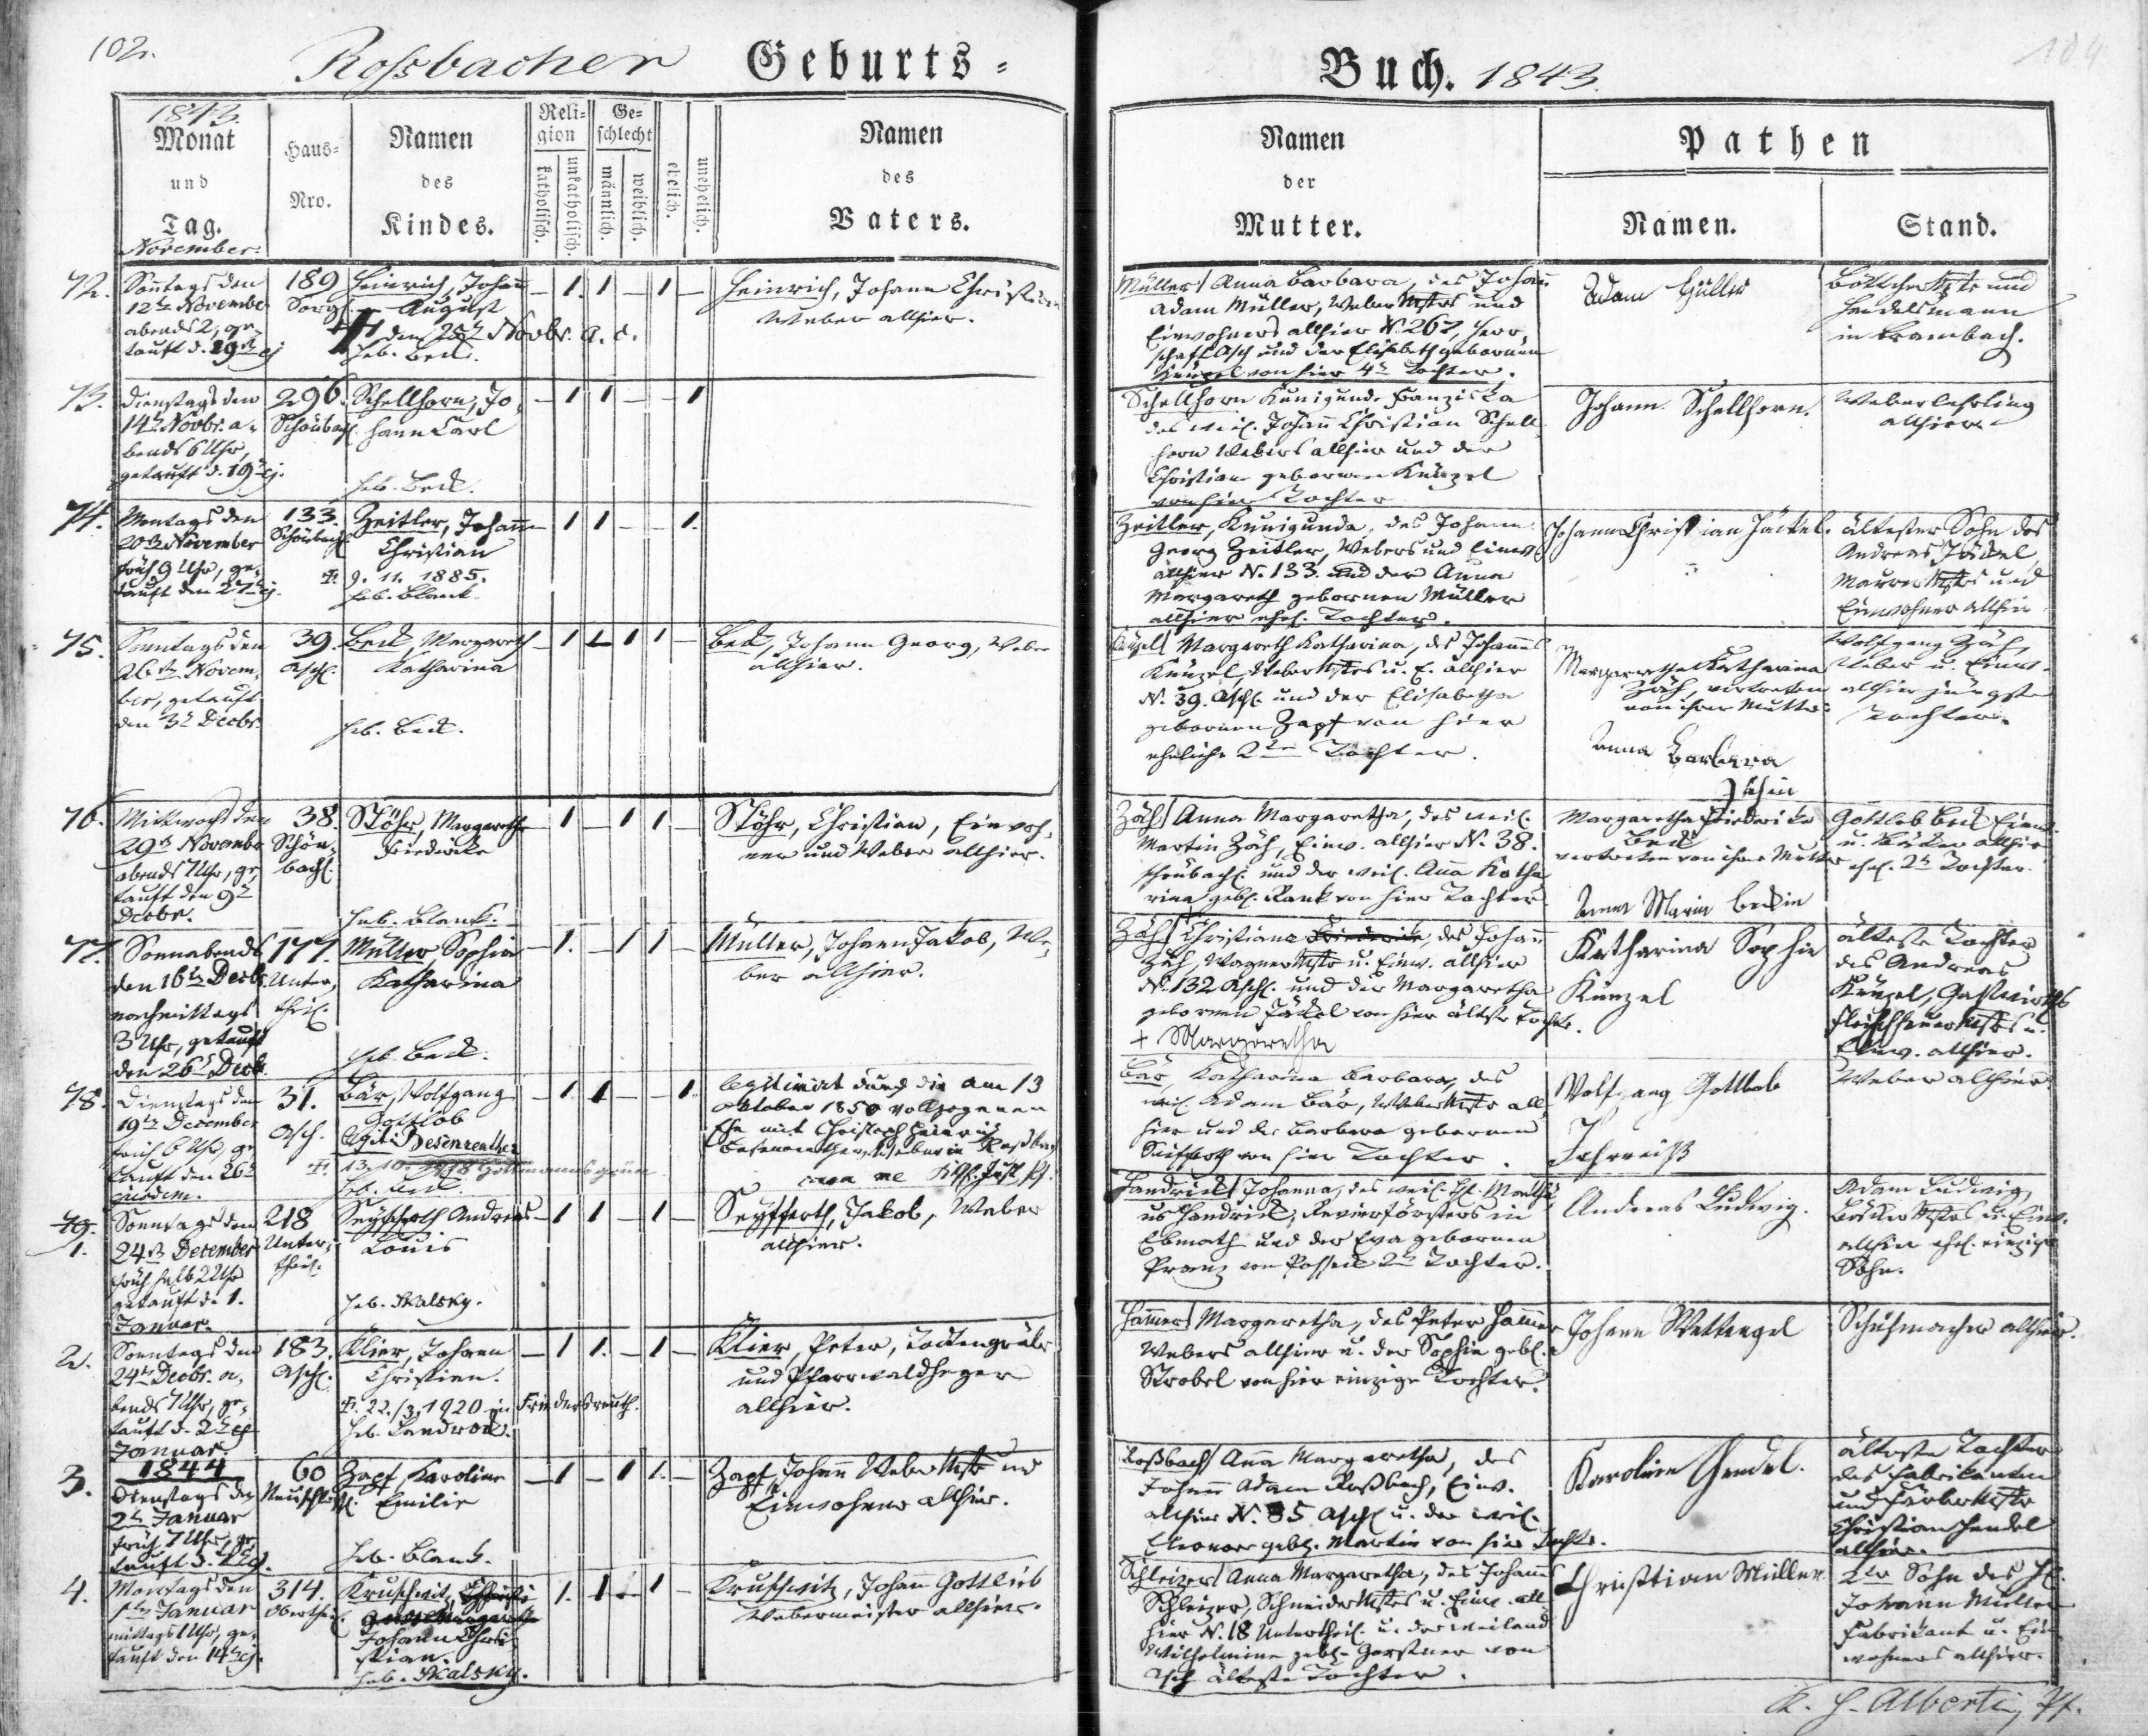 102.
Rossbacher Geburts-
Buch. 1843.
104
1843.
Monat
und
Tag.
November.
Haus-
Nro.
Namen
des
Kindes.
Reli-
gion
katholisch.
unkatholisch.
Ge-
schlecht
männlich.
weiblich.
ehelich.
unehelich.
Namen
des
Vaters.
Namen
der
Mutter.
Pathen
Namen.
Stand.
72.
Sonntags den
12ten November
abends 2, ge-
tauft d. 19ten ej
189
Sorg.
Heinrich, Johann
August
† den 28ten Novbr. a. c.
Heb. Beck.
Heinrich, Johann Christian
Weber allhier.
Müller, Anna Barbara, des Johann
Adam Müller, Weber Mstrs und
Einwohners allhier N. 267, Herr-
schaft Asch und der Elisabeth gebornen
Künzel von hier 4te Tochter.
Adam Güller
Böttcher Mstr und
Handelsmann
in Brambach.
73.
Dienstags den
14ten Novbr. a-
bends 6 Uhr,
getauft d. 19ten ej.
296.
Schönbach.
Schellhorn, Jo-
hann Carl
Heb. Beck.
Schellhorn Kunigunde Franziska
des weil. Johann Christian Schell-
horn Webers allhier und der
Christiane gebornen Künzel
von hier Tochter
Johann Schellhorn.
Weberlehrling
allhier.
74.
Montags den
20ten November
früh 9 Uhr, ge-
tauft den 27ten ej.
133.
Schönbach
Zeitler, Johann
Christian
† 9. 11. 1885.
Heb. Blank.
Zeitler, Kunigunda, des Johann
Georg Zeitler, Webers und Einw.
allhier N. 133. und der Anna
Margareth gebornen Müller
allhier ehel. Tochter.
Johann Christian Jäckel.
ältester Sohn des
Andreas Jäckel,
Maurer Mstrs und
Einwohner allhier
75.
Sonntags den
26ten Novem-
ber, getauft
den 3ten Decbr.
39.
Asch.
Beck, Margareth
Katharina
Heb. Beck.
Beck, Johann Georg, Weber
allhier.
Künzel, Margareth Katharina, des Johannes
Künzel, Weber Mstrs u. E. allhier
N. 39. Asch. und der Elisabetha
gebornen Zapf von hier
eheliche 2te Tochter.
Margaretha Katharina
Zäh, vertreten
von ihrer Mutter:
Anna Barbara
Zähin
Wolfgang Zäh,
Weber u. Einw.
allhier jüngste
Tochter.
76.
Mittwoch den
29ten Novembr
abends 7 Uhr, ge-
tauft den 9ten
Decbr.
38.
Schön-
bach.
Stöhr, Margaretha
Friederike
Heb. Blank.
Stöhr, Christian, Einwoh-
ner und Weber allhier.
Zäh, Anna Margaretha, des weil.
Martin Zäh, Einw. allhier N. 38.
Schönbach. und der weil. Anna Katha-
rina geb. Rank von hier Tochter
Margaretha Friederike
Beck
vertreten von ihrer Mutter
Anna Maria Beckin
Gottlieb Beck Einw.
u. Bäcker allhier
ehel. 2te Tochter.
77.
Sonnabends
den 16ten Decbr.
nachmittags
3 Uhr, getauft
den 26ten Decbr.
177.
Unter-
theil.
Müller Sophie
Katharina
Heb. Beck.
Müller, Johann Jakob, We-
ber allhier.
Zäh, Christiane Friederike, des Johann
Zäh, Wagner Mstrs u. Einw. allhier
N. 132 Asch. und der Margaretha
gebornen Jäckel von hier älteste Tochter.
+ Margaretha
Katharina Sophie
Künzel
älteste Tochter
des Andreas
Künzel, Gastwirths
Fleischhauer Mstrs u.
Einw. allhier.
78.
Dienstags den
19ten December
früh 6 Uhr, ge-
tauft den 26ten
ejusdem.
31.
Asch.
Bär, Wolfgang
Gottlob
legit. Besenreuther
Heb. Beck.
legitimirt durch die am 13
Oktober 1850 vollzogenen
Ehe mit Christoph Heinrich
Besenreuther, Weber in Roßbach
Bär, Katharina Barbara, des
weil. Adam Bär, Weber Mstrs all-
hier und der Barbara gebornen
Seifferth von hier Tochter.
Wolfgang Gottlob
Schreiß
Weber allhier
79.
1.
Sonntags den
24ten December
früh halb 2 Uhr
getauft d. 1.
Januar.
218
Unter-
theil.
Seyfferth Andreas
Louis
Heb. Skalsky.
Seyfferth, Jakob, Weber
allhier.
Handrick, Johanna, des weil. H. Matthä-
us Handrick, Revierförsters in
Ebmath und der Eva gebornen
Pranz von Posseck 2te Tochter.
Andreas Ludwig.
Adam Ludwig,
Bäcker Mstrs u. Einw.
allhier ehel. einziger
Sohn.
2.
Sonntags den
24ten Decbr. a-
bends 7 Uhr, ge-
tauft d. 2ten
Januar.
183.
Asch.
Klier, Johann
Christian.
† 22./3. 1920 in Friedersreuth.
Heb. Landrock.
Klier, Peter, Todtengräber
und Pfarrwaldheger
allhier.
Hammer, Margaretha, des Peter Hammer
Webers allhier u. der Sophie geb.
Strobel von hier einzige Tochter.
Johann Wettengel
Schuhmacher allhier.
3.
1844
Dienstags den
2ten Januar
früh 7 Uhr, ge-
tauft d. 7ten ej.
60
Neuschloß.
Zapf, Karoline
Emilie
Heb. Blank.
Zapf, Johann Weber Mstr und
Einwohner allhier.
Roßbach, Anna Margaretha, des
Johann Adam Roßbach, Einw.
allhier N. 35 Asch u. der weil.
Eleonore geb. Martin von hier Tochter.
Karoline Hendel.
älteste Tochter
des Fabrikanten
und Färber Mstrs
Christian Hendel
allhier.
4.
Montags den
1ten Januar
mittags 1 Uhr, ge-
tauft den 14ten ej.
314.
Obertheil.
Kruschwitz,
Johann Chri-
stian.
Heb. Skalsky.
Kruschwitz, Johann Gottlieb
Webermeister allhier.
Schleizer, Anna Margaretha, des Johann
Schleizer, Schneider Mstrs u. Einw. all-
hier N. 18 Untertheil. u. der weiland
Wilhelmine geb. Gerstner von
Asch älteste Tochter.
Christian Müller.
2ter Sohn des H.
Johann Müller
Fabrikant u. Ein-
wohners allhier.
K. H. Alberti, Pf.